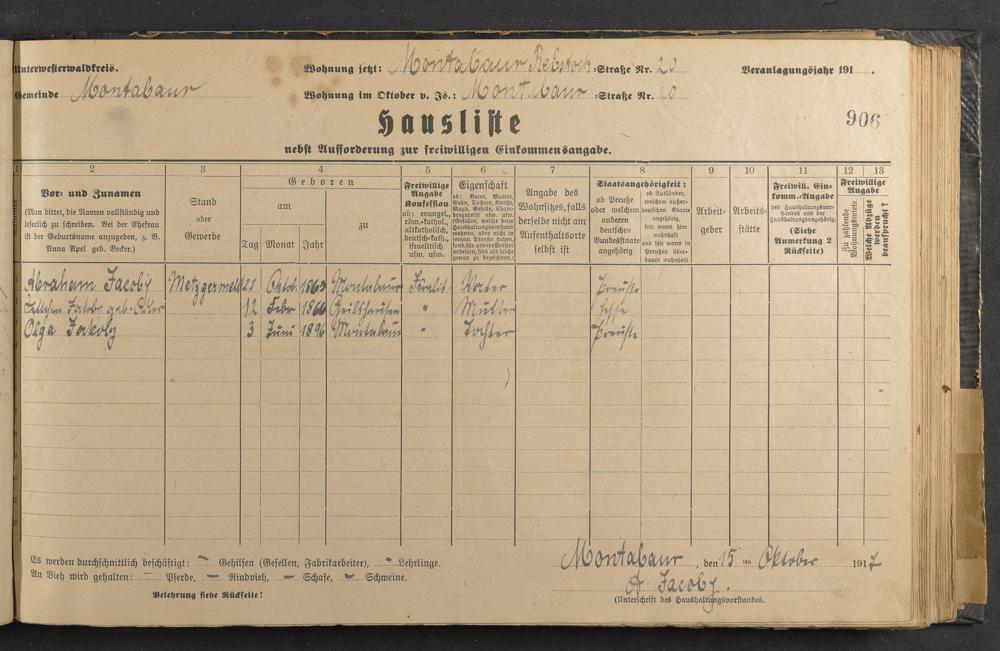 Unterwesterwaldkreis.
Wohnung jetzt: Montabaur Rebstock-Straße Nr. 20
Veranlagungsjahr 191 .
Gemeinde Montabaur
Wohnung im Oktober v. Js.: Montabaur -Straße Nr. 20
Hausliste
906
nebst Aufforderung zur freiwilligen Einkommensangabe.
1 2 3 4 5 6 7 8. 9 10 11 12 13
Vor- und Zunamen
(Man bittet, die Namen vollständig und
leserlich zu schreiben. Bei der Ehefrau
ist der Geburtsname anzugeben, z. B.
Anna Apel geb. Becker.)
Stand
oder
Gewerbe
Geboren
am
zu
Tag Monat Jahr
Freiwillige
Angabe
Konfession
ob: evangel.,
röm.-kathol.,
altkatholisch,
deutsch-kath.,
israelitisch
usw. usw.
Eigenschaft
ob: Vater, Mutter,
Sohn, Tochter, Knecht,
Magd, Geselle,
Angabe des
Wohnsitzes, falls
derselbe nicht am
Aufenthaltsorte
selbst ist
Staatsangehörigkeit:
ob Preuße
oder welchem
anderen
deutschen
Bundesstaate
angehörig
ob Ausländer,
welchem außer-
deutschen Staate
angehörig,
seit wann hier
wohnhaft
und seit wann in
Preußen über-
haupt wohnhaft
Arbeit-
geber
Arbeits-
stätte
Freiwill. Ein-
komm.-Angabe
der Haushaltungsvor-
standes und der
Haushaltungsangehörig.
(Siehe
Anmerkung 2
Rückseite)
Freiwillige
Angabe
Zu zahlende
Wohnungsmiete
Welche Abzüge
werden
beansprucht?
Abraham Jacoby Metzgermeist 21 Oktbr. 1863 Montabaur Israelit. Vater Preuße
Jacoby geb. 12 Febr 1866 " Mutter Hesse
Olga Jacoby 3 Juni 1896 Montabaur " Tochter Preuße
Es werden durchschnittlich beschäftigt: – Gehilfen (Gesellen, Fabrikarbeiter), – Lehrlinge.
An Vieh wird gehalten: – Pferde, – Rindvieh, – Schafe, – Schweine.
Belehrung siehe Rückseite!
Montabaur, den 15 ten Oktober 1917
A. Jacoby.
(Unterschrift des Haushaltungsvorstandes.